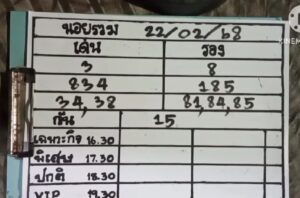 นอยรวม 22/02/68
เด่น รอง
3 8
834 185
34,38 81,84,85
กัน 15
เฉพาะกิจ 16.30
พิเศษ 17.30
ปกติ 18.30
VIP 19.30
KINEM